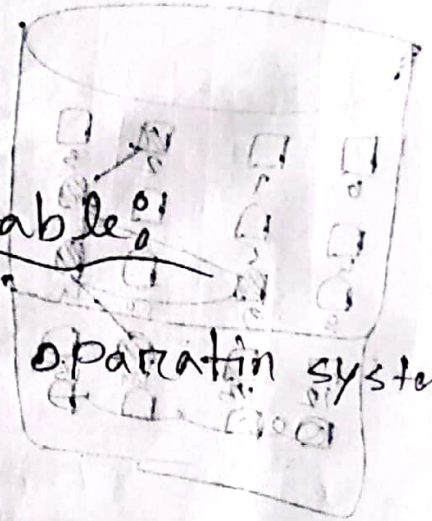 able:
oparatin syste